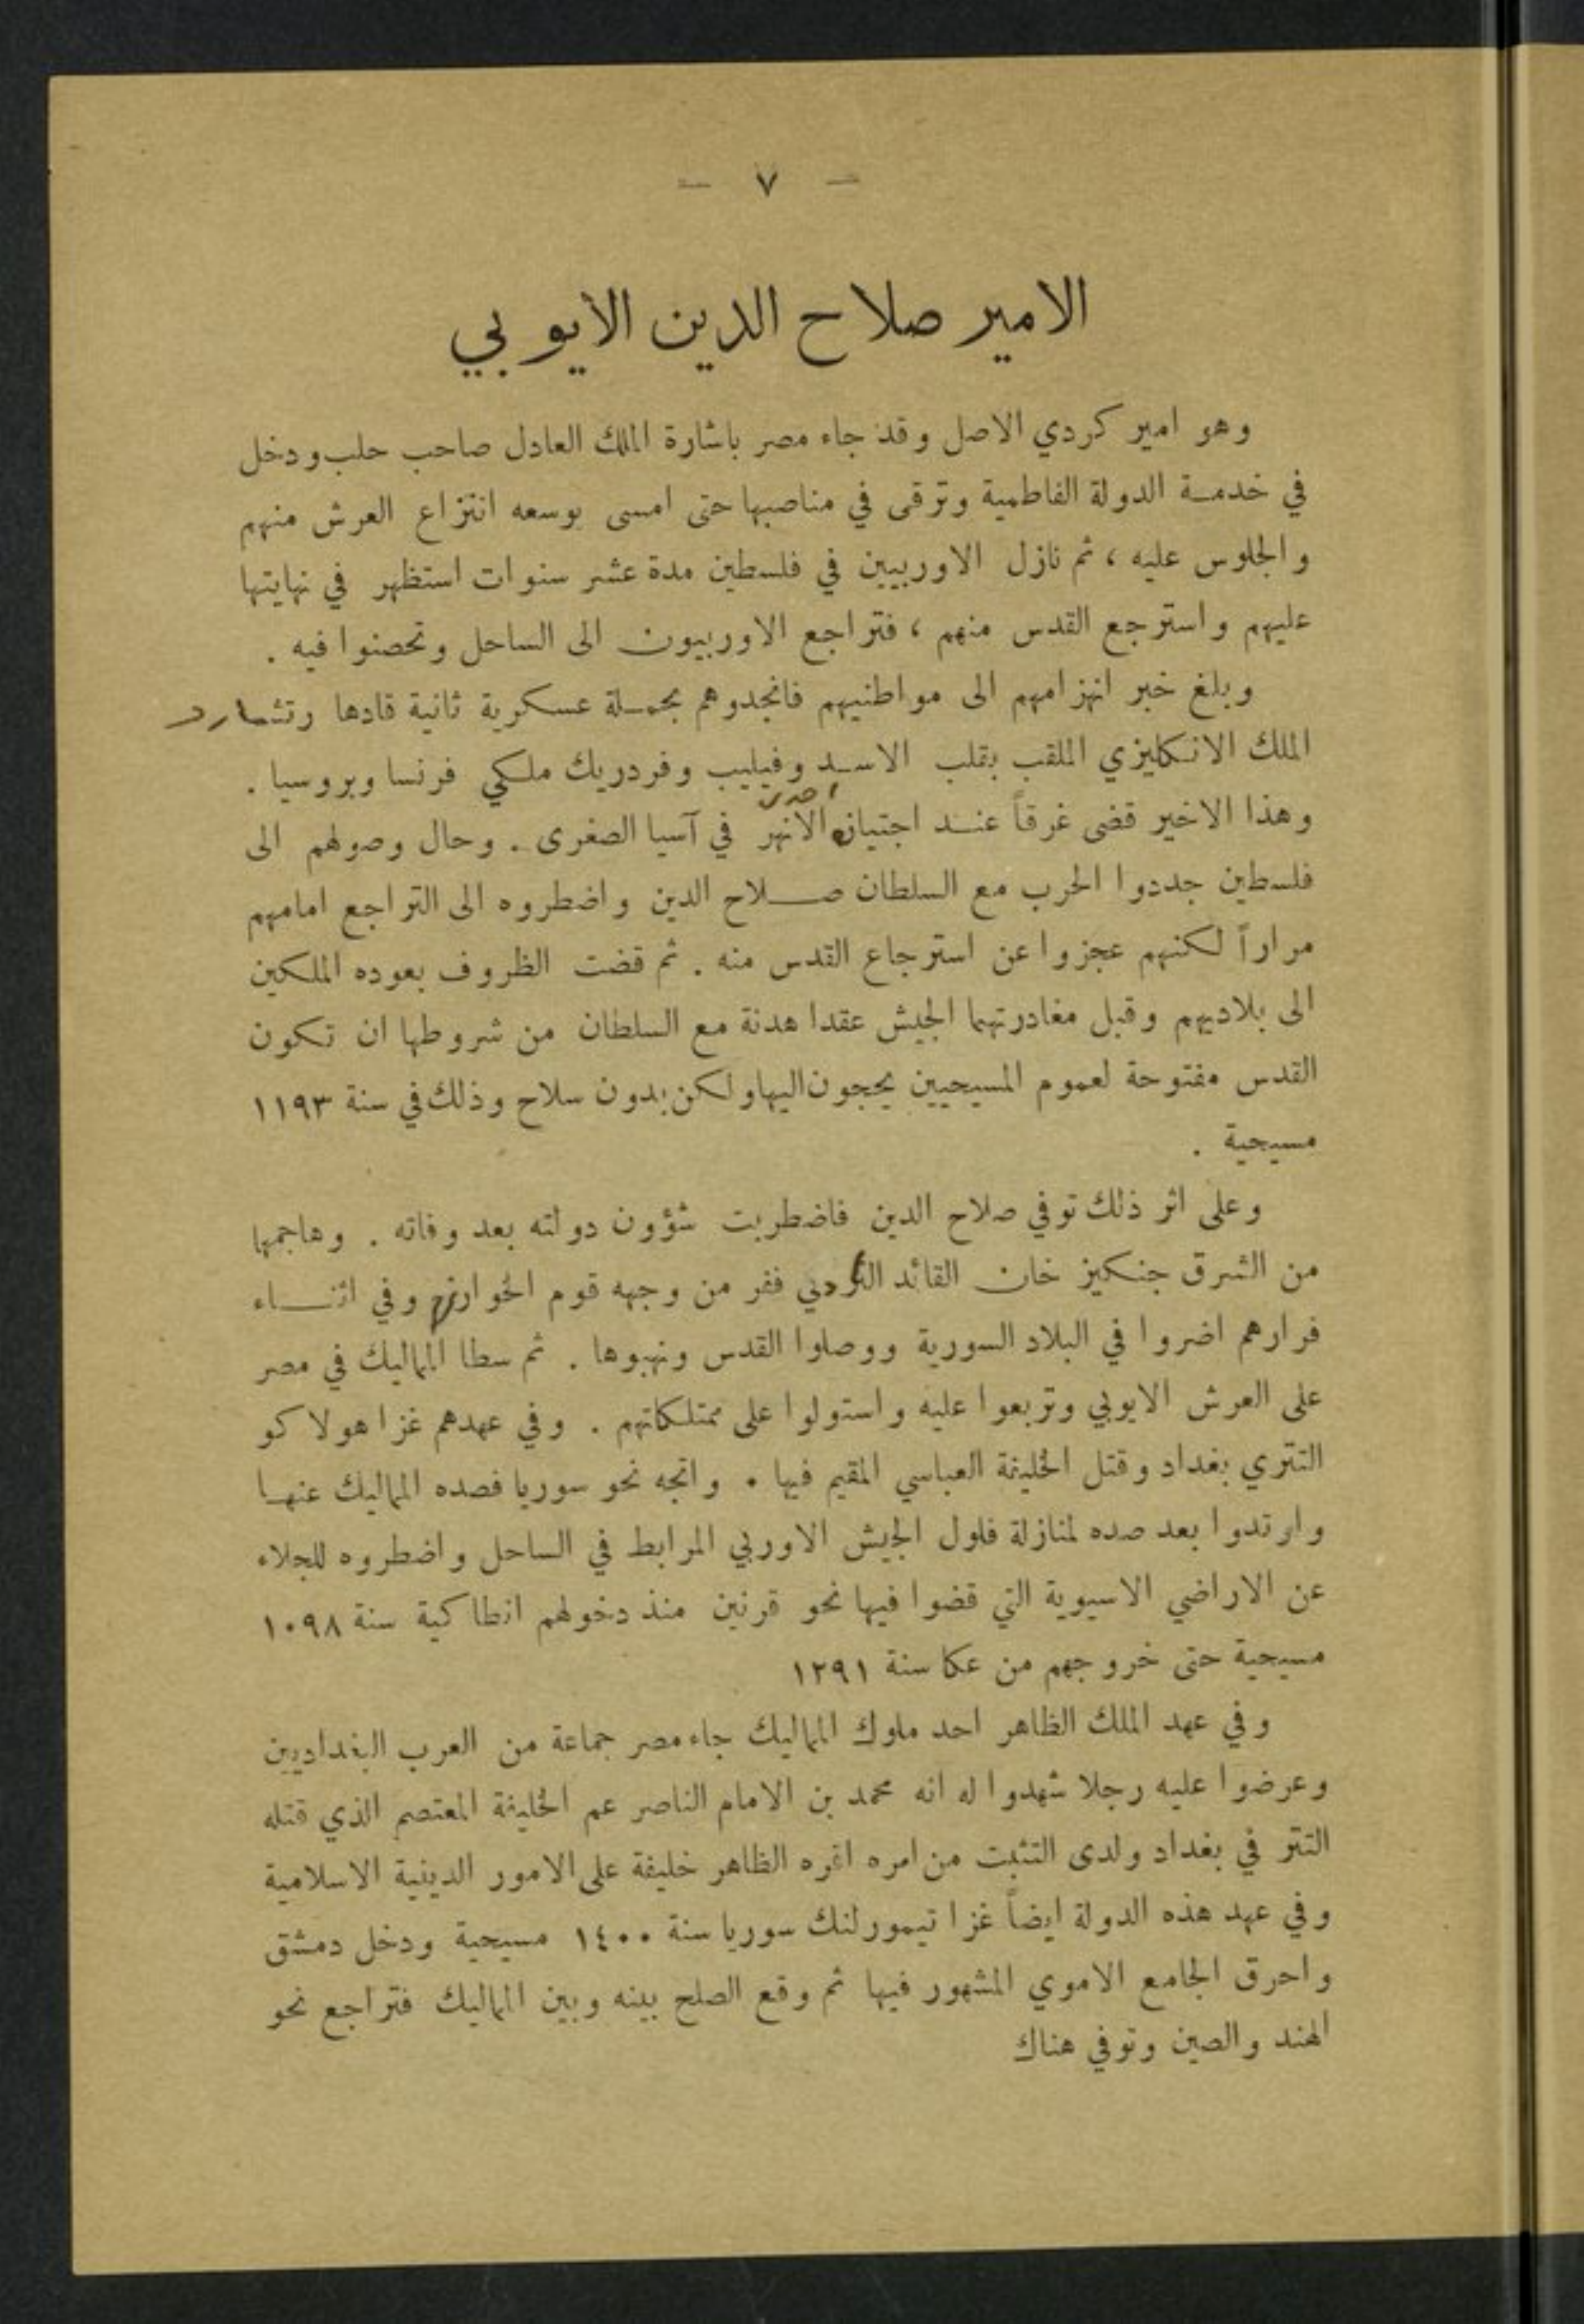 — ٧ —
الامير صلاح الدين الأيوبي
وهو امير كردي الاصل وقد جاء مصر باشارة الملك العادل صاحب حلب ودخل
في خدمة الدولة الفاطمية وترقى في مناصبها حتى امسى بوسعه انتزاع العرش منهم
والجلوس عليه ، ثم نازل الاوربيين في فلسطين مدة عشر سنوات استظهر في نهايتها
عليهم واسترجع القدس منهم ، فتراجع الاوربيون الى الساحل وتحصنوا فيه .
وبلغ خبر انهزامهم الى مواطنيهم فانجدوهم بحملة عسكرية ثانية قادها رتشارد
الملك الانكليزي الملقب بقلب الاسد وفيليب وفردريك ملكي فرنسا وبروسيا .
وهذا الاخير قضى غرقاً عند اجتيازه احدى الانهر في آسيا الصغرى . وحال وصولهم الى
فلسطين جددوا الحرب مع السلطان صلاح الدين واضطروه الى التراجع امامهم
مراراً لكنهم عجزوا عن استرجاع القدس منه . ثم قضت الظروف بعوده الملكين
الى بلاديهم وقبل مغادرتهما الجيش عقدا هدنة مع السلطان من شروطها ان تكون
القدس مفتوحة لعموم المسيحيين يحجون اليها ولكن بدون سلاح وذلك في سنة ١١٩٣
مسيحية .
وعلى اثر ذلك توفي صلاح الدين فاضطربت شؤون دولته بعد وفاته . وهاجمها
من الشرق جنكيز خان القائد ففر من وجهه قوم وفي اثناء
فرارهم اضروا في البلاد السورية ووصلوا القدس ونهبوها . ثم سطا المماليك في مصر
على العرش الايوبي وتربعوا عليه واستولوا على ممتلكاتهم . وفي عهدهم غزا هولاكو
التتري بغداد وقتل الخليفة العباسي المقيم فيها . واتجه نحو سوريا فصده المماليك عنها
وارتدوا بعد صده لمنازلة فلول الجيش الاوربي المرابط في الساحل واضطروه للجلاء
عن الاراضي الاسيوية التي قضوا فيها نحو قرنين منذ دخولهم انطاكية سنة ١٠٩٨
مسيحية حتى خروجهم من عكا سنة ١٢٩١
وفي عهد الملك الظاهر احد ملوك المماليك جاء مصر جماعة من العرب البغداديين
وعرضوا عليه رجلا شهدوا له انه محمد بن الامام الناصر عم الخليفة المعتصم الذي قتله
التتر في بغداد ولدى التثبت من امره اقره الظاهر خليفة على الامور الدينية الاسلامية
وفي عهد هذه الدولة ايضاً غزا تيمورلنك سوريا سنة ١٤٠٠ مسيحية ودخل دمشق
واحرق الجامع الاموي المشهور فيها ثم وقع الصلح بينه وبين المماليك فتراجع نحو
الهند والصين وتوفي هناك